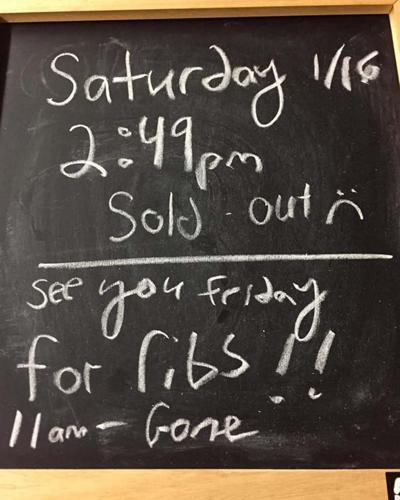 Saturday 1/16
2:49pm
Sold out
see you friday
for ribs!!
11am - Gone